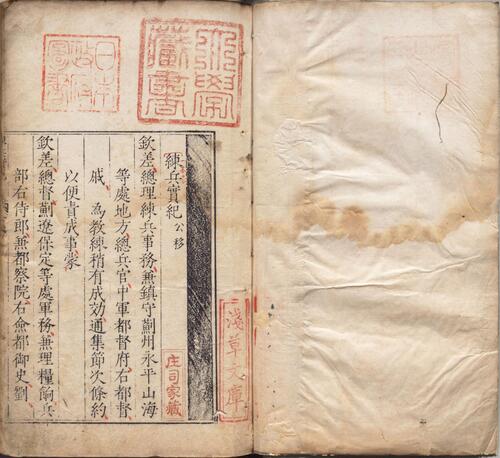 大學
藏書
日本
政府
圖書
練兵實紀 公移
欽差總理練兵事務兼鎮守薊州永平山海
等處地方總兵官中軍都督府右都督
戚 為教練稍有成効通集節次條約
以便責成事蒙
欽差總督薊遼保定等處軍務兼理糧餉兵
部右侍郎兼都察院右僉都御史劉
淺草文庫
庄司家藏